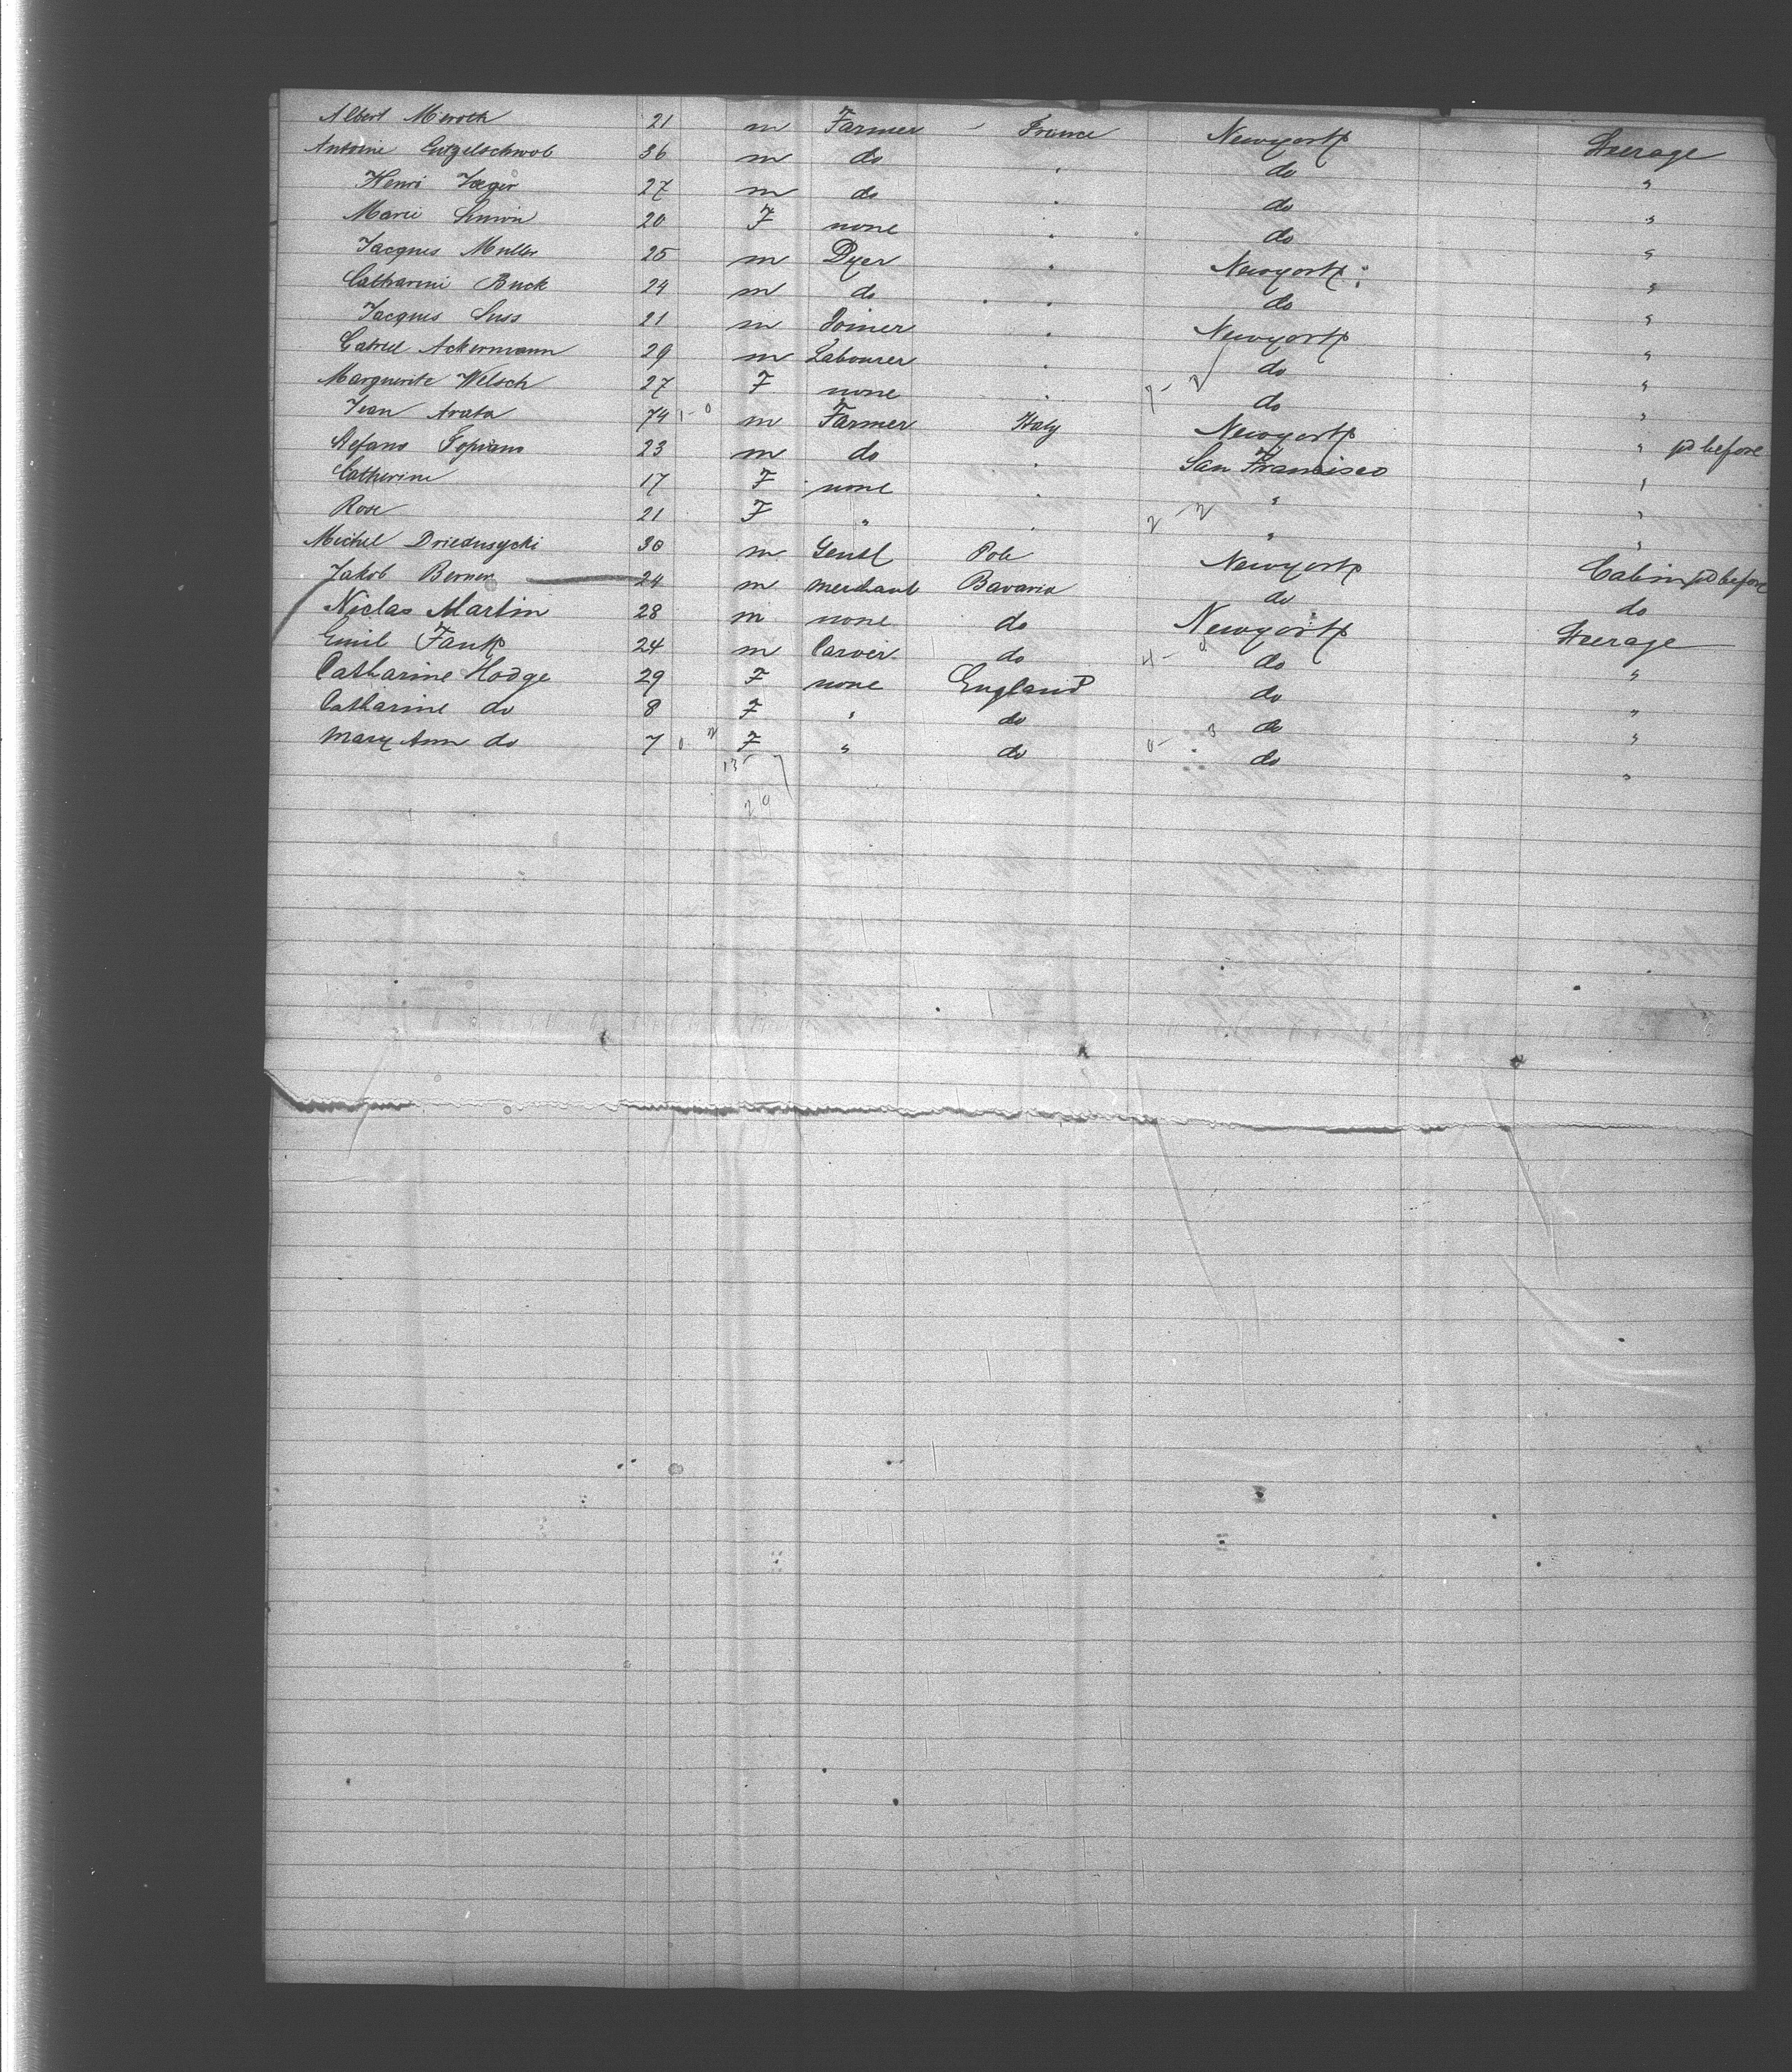 Albert Meroth 21 m Farmer - France Newyork Steerage
Antoine Gutzelschwob 36 m do " do "
Henri Jaeger 27 m do " do "
Marie 20 F none " do "
Jacques Muller 25 m Dyer " Newyork "
Catharine Buck 24 m do " do "
Jacques Suss 21 m Joiner " Newyork "
Gabriel Ackermann 29 m Labourer " do "
Marguerite Welsch 27 F none " 7-2 do "
Jean Arata 74 1-0 m Farmer Italy Newyork "
Stefano 23 m do " San Francisco " pd before
Catherine 17 F none " " "
Rose 21 F " " 2-2 " "
Michel Driedusycki 30 m Gentl Pole Newyork Cabin pd before
Jakob Berner 24 m merchant Bavaria do do
Niclas Martin 28 m none do Newyork Steerage
Emil Fauk 24 m Carver do do "
Catharine Hodge 29 F none England do "
Catharine do 8 F " do do "
Mary Ann do 7 0 2 F " do 0-3 do "
13 7
20